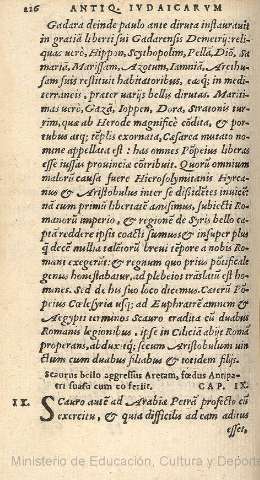 226 ANTIQ. IVDAICARVM
Gadara deinde paulo ante diruta instaurauit
in gratiā liberti sui Gadarensis Demetrij: reli-
quas uerò, Hippon, Scythopolim, Pellā, Diō, Sa
mariā, Marissam, Azotum, Iamniā, Arethu-
sam suis restituit habitatoribus, eaq; in medi-
terraneis, præter uarijs bellis dirutas. Mariti-
mas uerò, Gazā, Ioppen, Dora, Stratonis tur-
rim, quæ ab Herode magnificè cōdita, & por-
tubus atq; tēplis exornata, Cæsarea mutato no-
mine appellata est: has omnes Pōpeius liberas
esse iussas prouinciæ cōtribuit. Quorū omnium
malorū causa fuere Hierosolymitanis Hyrca-
nus & Aristobulus inter se dißidētes inuicē:
nā tum primū libertatē amisimus, subiecti Ro-
manorū imperio, & regionē de Syris bello cap
tā reddere ipsis coacti sumus: & insuper plus
q̄ decē millia talētorū breui tēpore à nobis Ro-
mani exegerūt: & regnum quo prius pōtificale
genus honestabatur, ad plebeios traslatū est ho-
mines. Sed de his suo loco dicemus. Cæterū Pō-
peius Cœlesyria usq; ad Euphratē amnem &
Aegypti terminos Scauro tradita cū duabus
Romanis legionibus, ipse in Ciliciā abijt Romā
properans, abduxitq; secum Aristobulum uin
ctum cum duabus filiabus & totidem filijs.
Scaurus bello aggressus Aretam, fœdus Antipa-
tri suasu cum eo ferijt. CAP. IX.
IX. Scauro autē ad Arabiæ Petrā profecto cū
exercitu, & quia difficilis ad eam aditus
esset,
Ministerio de Educación, Cultura y Deporte